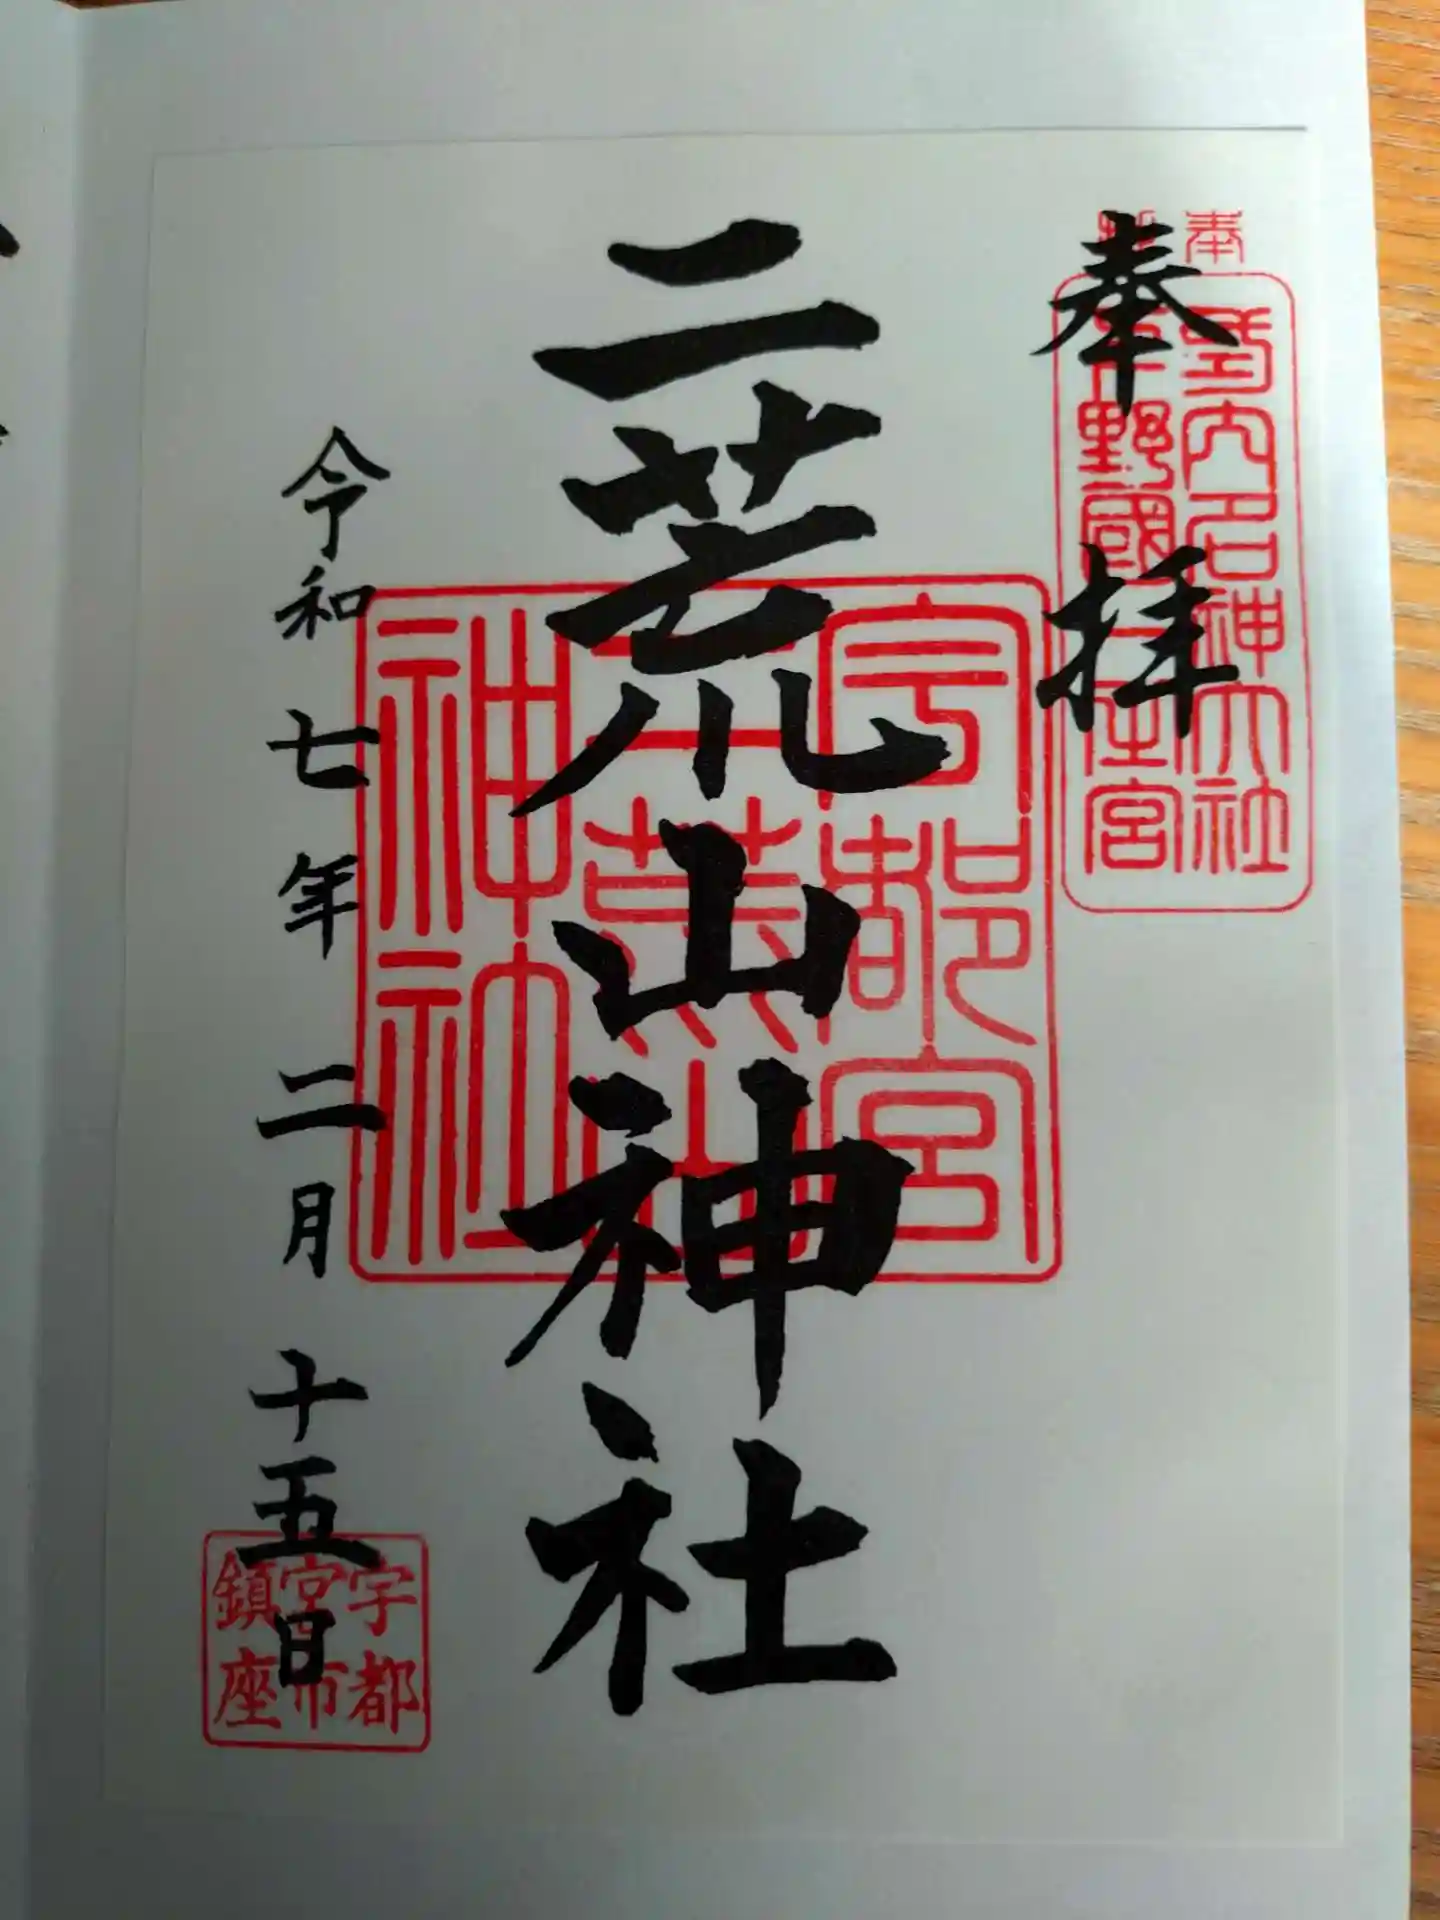 奉拝
二荒山神社
令和七年二月十五日
奉拝
式内名神大社
下野國一之宮
宇都宮
二荒山
神社
宇都
宮市
鎮座